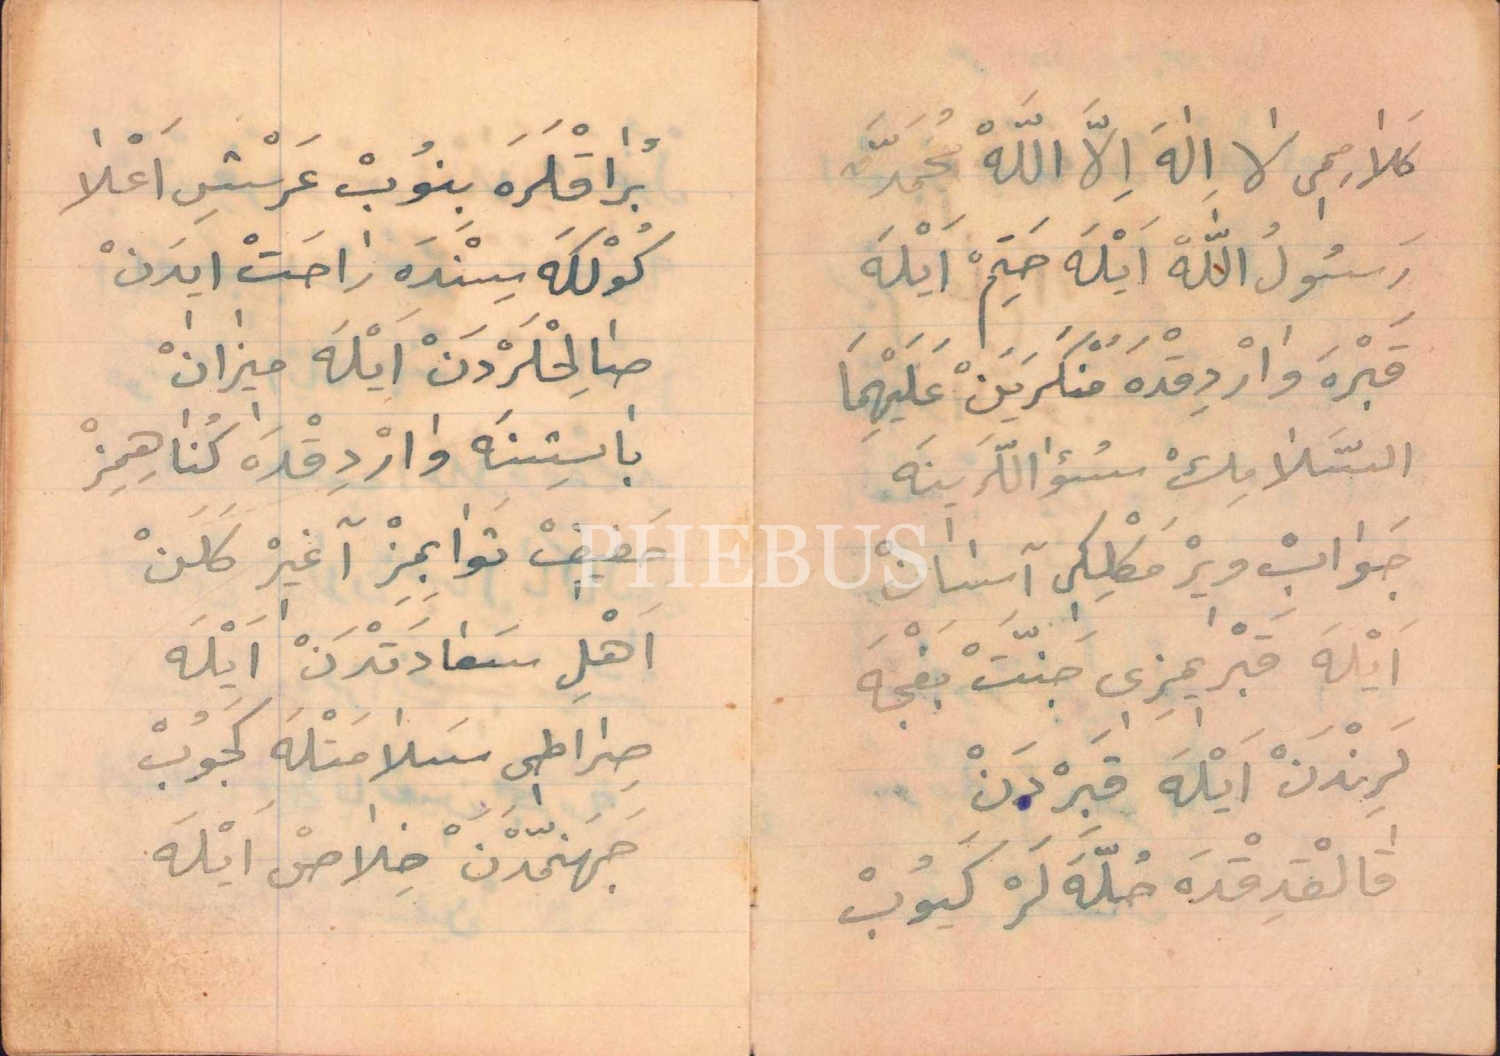 كَلَامِمِى لَا اِلٰهَ اِلَّا اللّٰهْ مُحَمَّدٌ
رَسُولُ اللّٰهْ اَيْلَهَ خَتِمْ اَيْلَهَ
قَبْرَهَ وَارْدِقْدَهَ مُنْكَرَيَنْ عَلَيْهِمَا
السَّلَامِكْ سُؤَاللَّرَينَهَ
جَوَابْ وِيرْمَكْلِكِى آسَانْ
اَيْلَهَ قَبْرِيمِزِى جَنَّتْ بَغْچَهَ
لَرِنْدَنْ اَيْلَهَ قَبَرْدَنْ
قَالْقْدِقْدَهَ حُلَّهَ لَرْ كَيُوبْ
بُرَاقْلَرَهَ بِنوُبْ عَرْشِ اَعْلَا
كُوْلكَهَ سِنْدَهَ رَاحَتْ ايدَنْ
صَالِحْلَرْدَنْ اَيْلَهَ مِيزَانْ
بَاشِينَهَ وَارْدِقْدَهَ كُنَاهِمِزْ
خَفِيفْ ثَوَابِمِزْ آغِيرْ كَلَنْ
اَهْلِ سَعَادَتْدَنْ اَيْلَهَ
صِرَاطِى سَلَامَتْلَهَ كَچُوبْ
جَهَنَّمْدَنْ خِلَاصْ اَيْلَهَ
PHEBUS